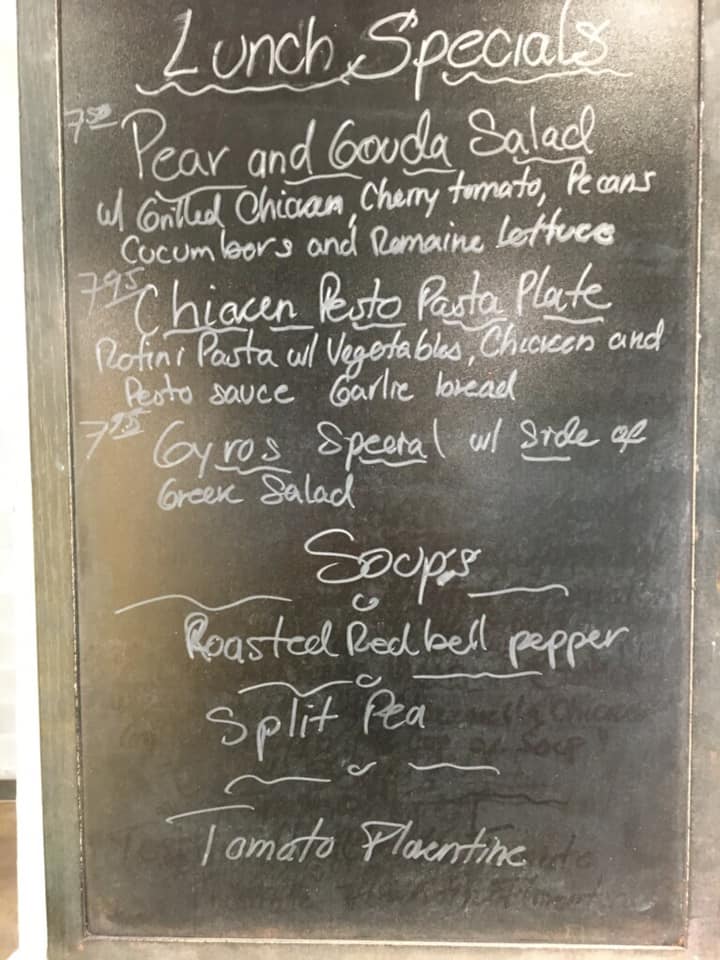 Lunch Specials
7.50 Pear and Gouda Salad
w/ Grilled Chicken, Cherry tomato, Pecans
Cucumbers and Romaine Lettuce
7.95 Chicken Pesto Pasta Plate
Rotini Pasta w/ Vegetables, Chicken and
Pesto sauce Garlic bread
7.95 Gyros Special w/ Side of
Greek Salad
Soups
Roasted Red bell pepper
Split Pea
Tomato Florentine